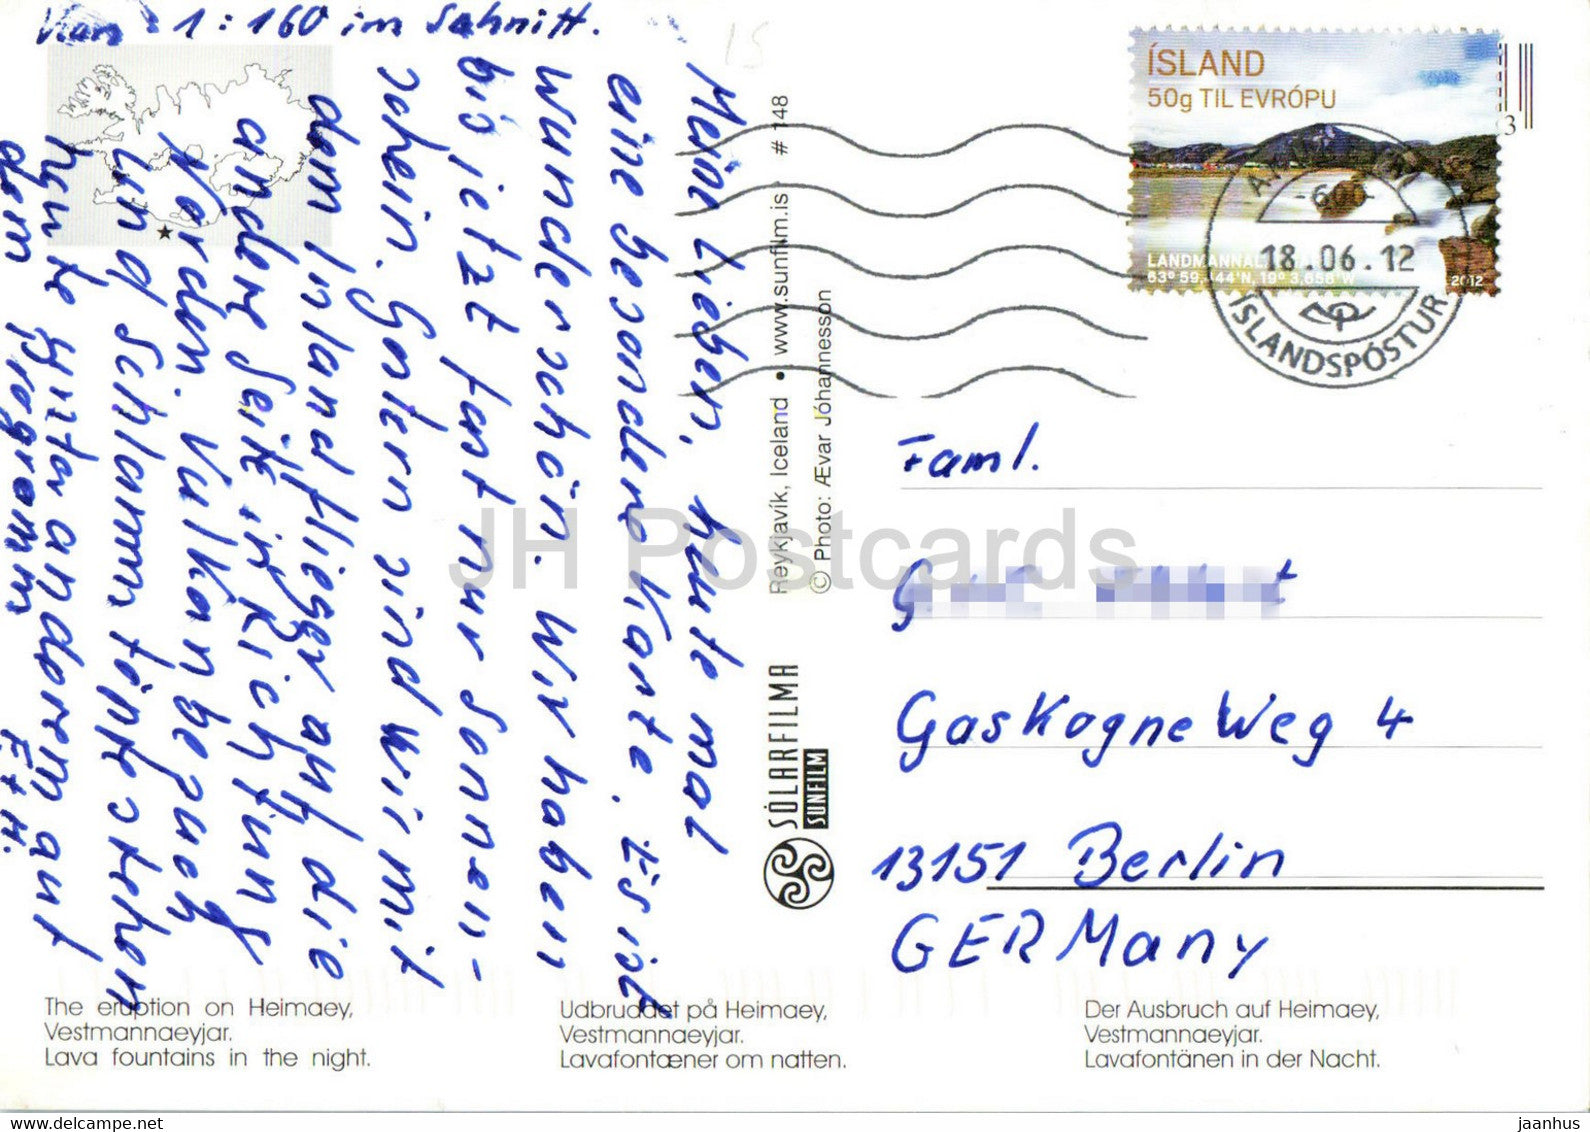 Meine Lieben, heute mal
eine besondere Karte. Es ist
wunderschön. Wir haben
bis jetzt fast nur Sonnen-
schein. Gestern sind wir mit
dem Inlandflieger auf die
andere Seite in Richtung
Norden. Vulkanbesuch
und Schlammtöpfchen
heute unter anderem auf
dem Programm E + H.
1:160 im Schnitt.
15
ÍSLAND
50g TIL EVRÓPU
LANDMANNAL
63° 59, 44'N, 19° 3,656'W
2012
3
-600-
18.06.12
ÍSLANDSPÓSTUR
Reykjavík, Iceland • www.sunfilm.is # 148
© Photo: Ævar Jóhannesson
SÓLARFILMA
SUNFILM
Faml.
G
t
Gaskogne Weg 4
13151 Berlin
GERMany
JH Postcards
The eruption on Heimaey,
Vestmannaeyjar.
Lava fountains in the night.
Udbruddet på Heimaey,
Vestmannaeyjar.
Lavafontæner om natten.
Der Ausbruch auf Heimaey,
Vestmannaeyjar.
Lavafontänen in der Nacht.
jaanhus